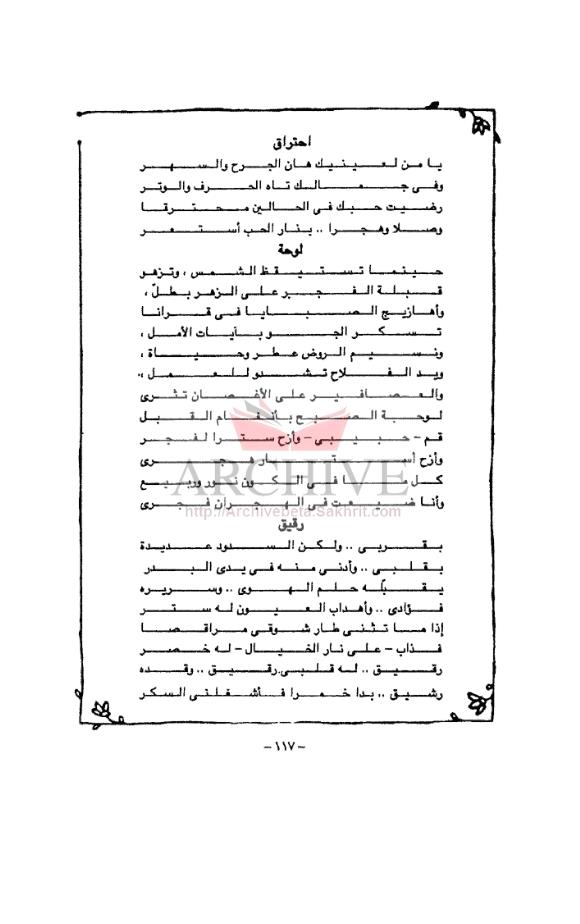 احتراق
يا من لعينيك هان الجرح والسهر
وفى جمالك تاه الحرف والوتر
رضيت حبك فى الحالين محترقا
وصلا وهجرا .. بنار الحب أستعر
لوحة
حينما تستيقظ الشمس ، وتزهو
قبلة الفجر على الزهر بطلّ ،
وأهازيج الصبايا فى قرانا
تسكر الجو بآيات الأمل ،
ونسيم الروض عطر وحياة ،
ويد الفلاح تشدو للعمل ..
والعصافير على الأغصان تثرى
لوحة الصبح بأنغام القبل
قم - حبيبى - وأزح سترا لفجر
وأزح أستار هجرى
كل ما فى الكون نور وربيع
وأنا ضيعت فى الهجران فجرى
ARCHIVE
http://Archivebeta.Sakhrit.com
رقيق
بقربى .. ولكن السدود عديدة
بقلبى .. وأدنى منه فى يدى البدر
يقبّله حلم الهوى .. وسريره
فؤادى .. وأهداب العيون له ستر
إذا ما تثنى طار شوقى مراقصا
فذاب - على نار الخيال - له خصر
رقيق .. له قلبى رقيق .. وقده
رشيق .. بدا خمرا فأشغلنى السكر
- ١١٧ -